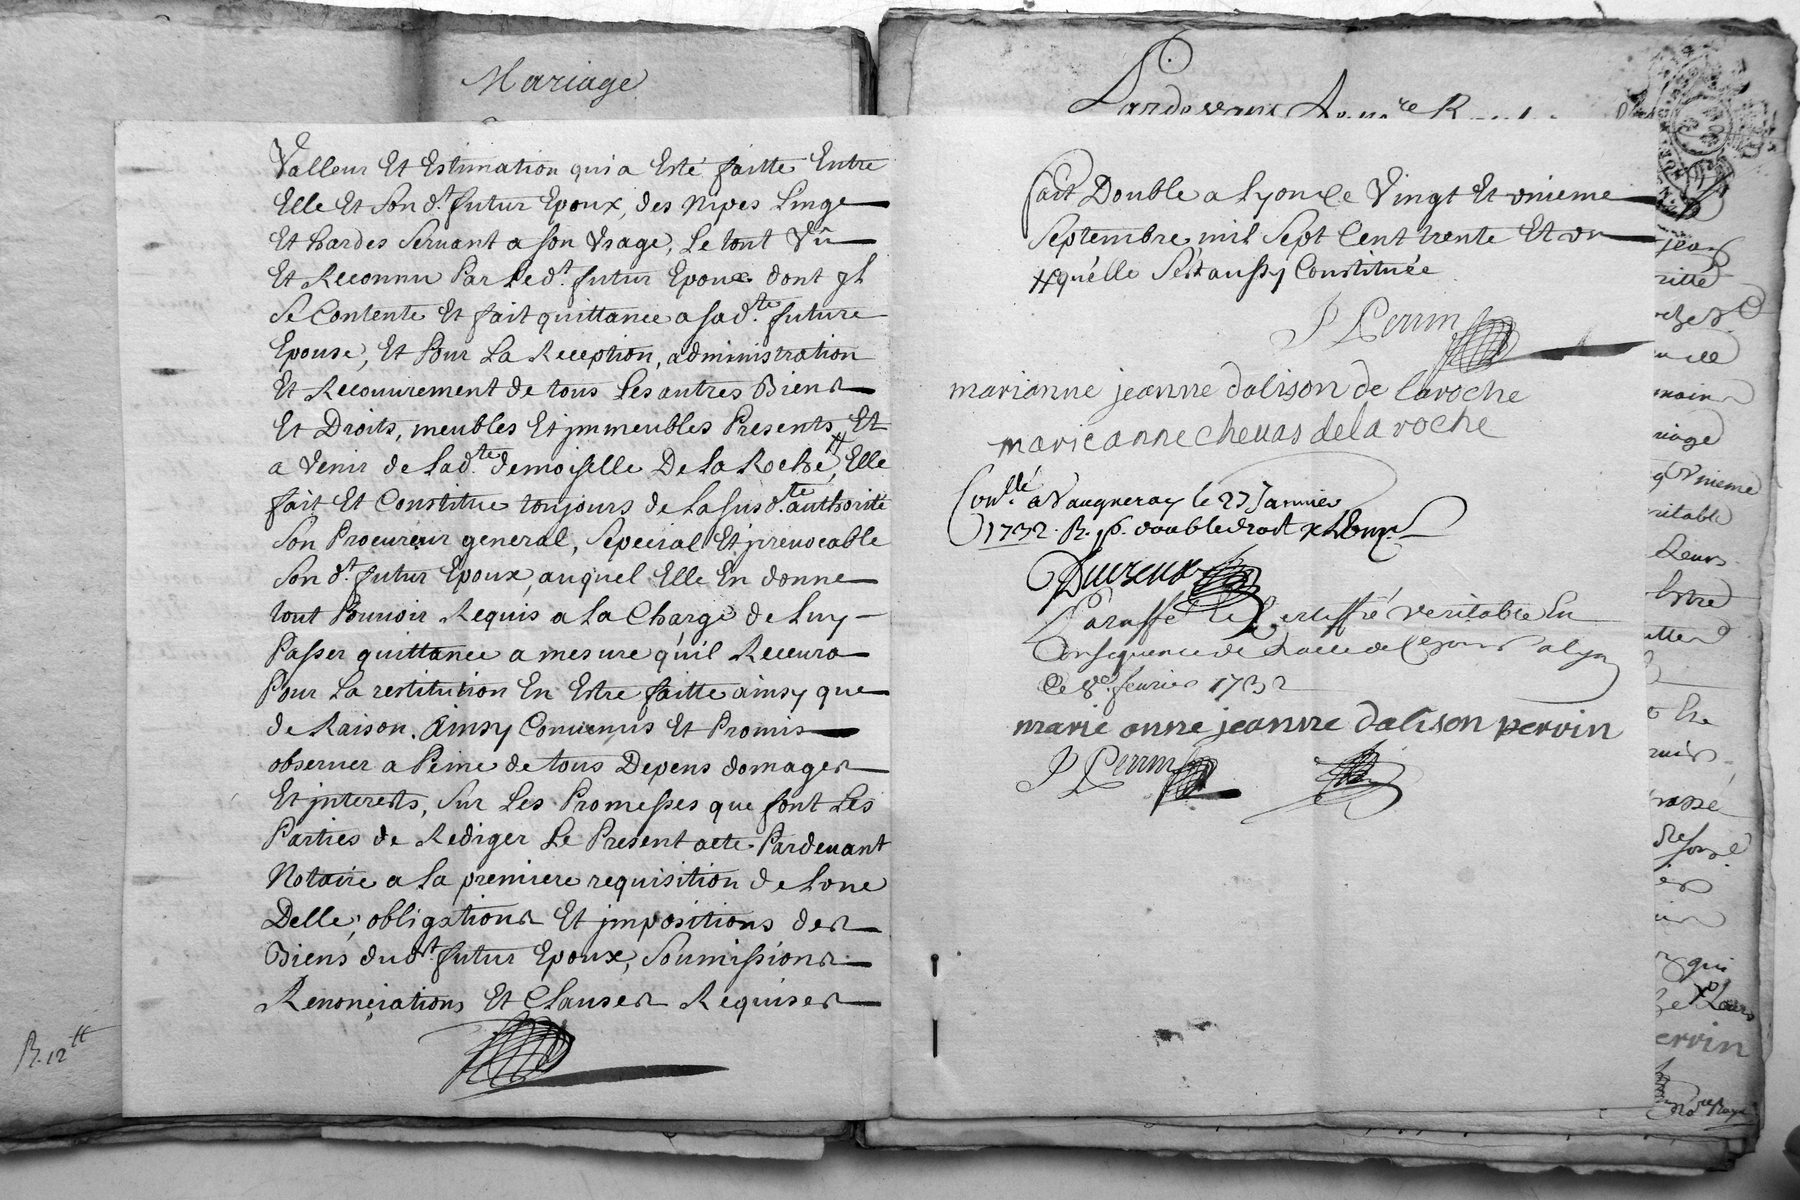 Mariage
Valleur Et Estimation qui a Esté faitte Entre
Elle Et Son d.t futur Epoux, des Nipes Linge
Et hardes Servant a Son Usage, Le tout Vû
Et Reconnu Par Le d.t futur Epoux dont jl
Se Contente Et fait quittance a sa d.te future
Epouse, Et Pour La Reception, administration
Et Recouurement de tous Les autres Biens
Et Droits, meubles Et jmmeubles Presents, Et
a Venir de La d.te demoiselle De La Roche, # Elle
fait Et Constitue toujours de La Sus d.te authorité
Son Procureur general, Special Et jrreuocable
Son d.t futur Epoux, auquel Elle En donne
tout Pouuoir Requis a La Charge de Luy
Passer quittance a mesure qu'il Receura
Pour La restitution En Estre faitte ainsy que
de Raison. Ainsy Conuenus Et Promis
obseruer a Peine de tous Depens domages
Et jnterests, Sur Les Promesses que font Les
Parties de Rediger Le Present acte Pardeuant
Notaire a La premiere requisition de Lune
Delle; obligations Et jmpositions des
Biens du d.t futur Epoux, Soumissions
Renonciations Et Clauses Requises
R. 12 tt
fait Double a Lyon Le Vingt Et Unieme
Septembre mil Sept Cent trente Et un
# qu'elle S'est aussy Constituée
J Perrin
marianne jeanne dalison de laroche
marie anne cheuas de la roche
Con.llé a Vaugneray le 23 Januier
1732. R. double droit
Paraffé Et Certiffié veritable En
Consequence de Lacte de Ce jour a Lyon
Ce 8e. feurier 1732
marie anne jeanne dalison perrin
J Perrin